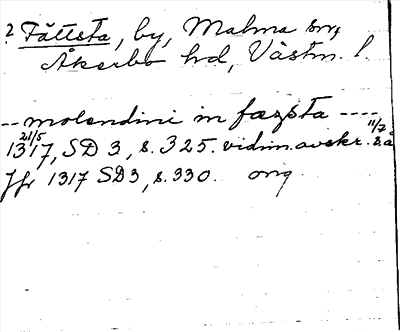 ? Fättsta, by, Malma sn,
Åkerbo hd, Västm. l.
-- molendini in fæzsta ----
1317 21/5, SD 3, s. 325. vidim. avskr. 11/7 s.å
Jfr 1317 SD3, s. 330. orig